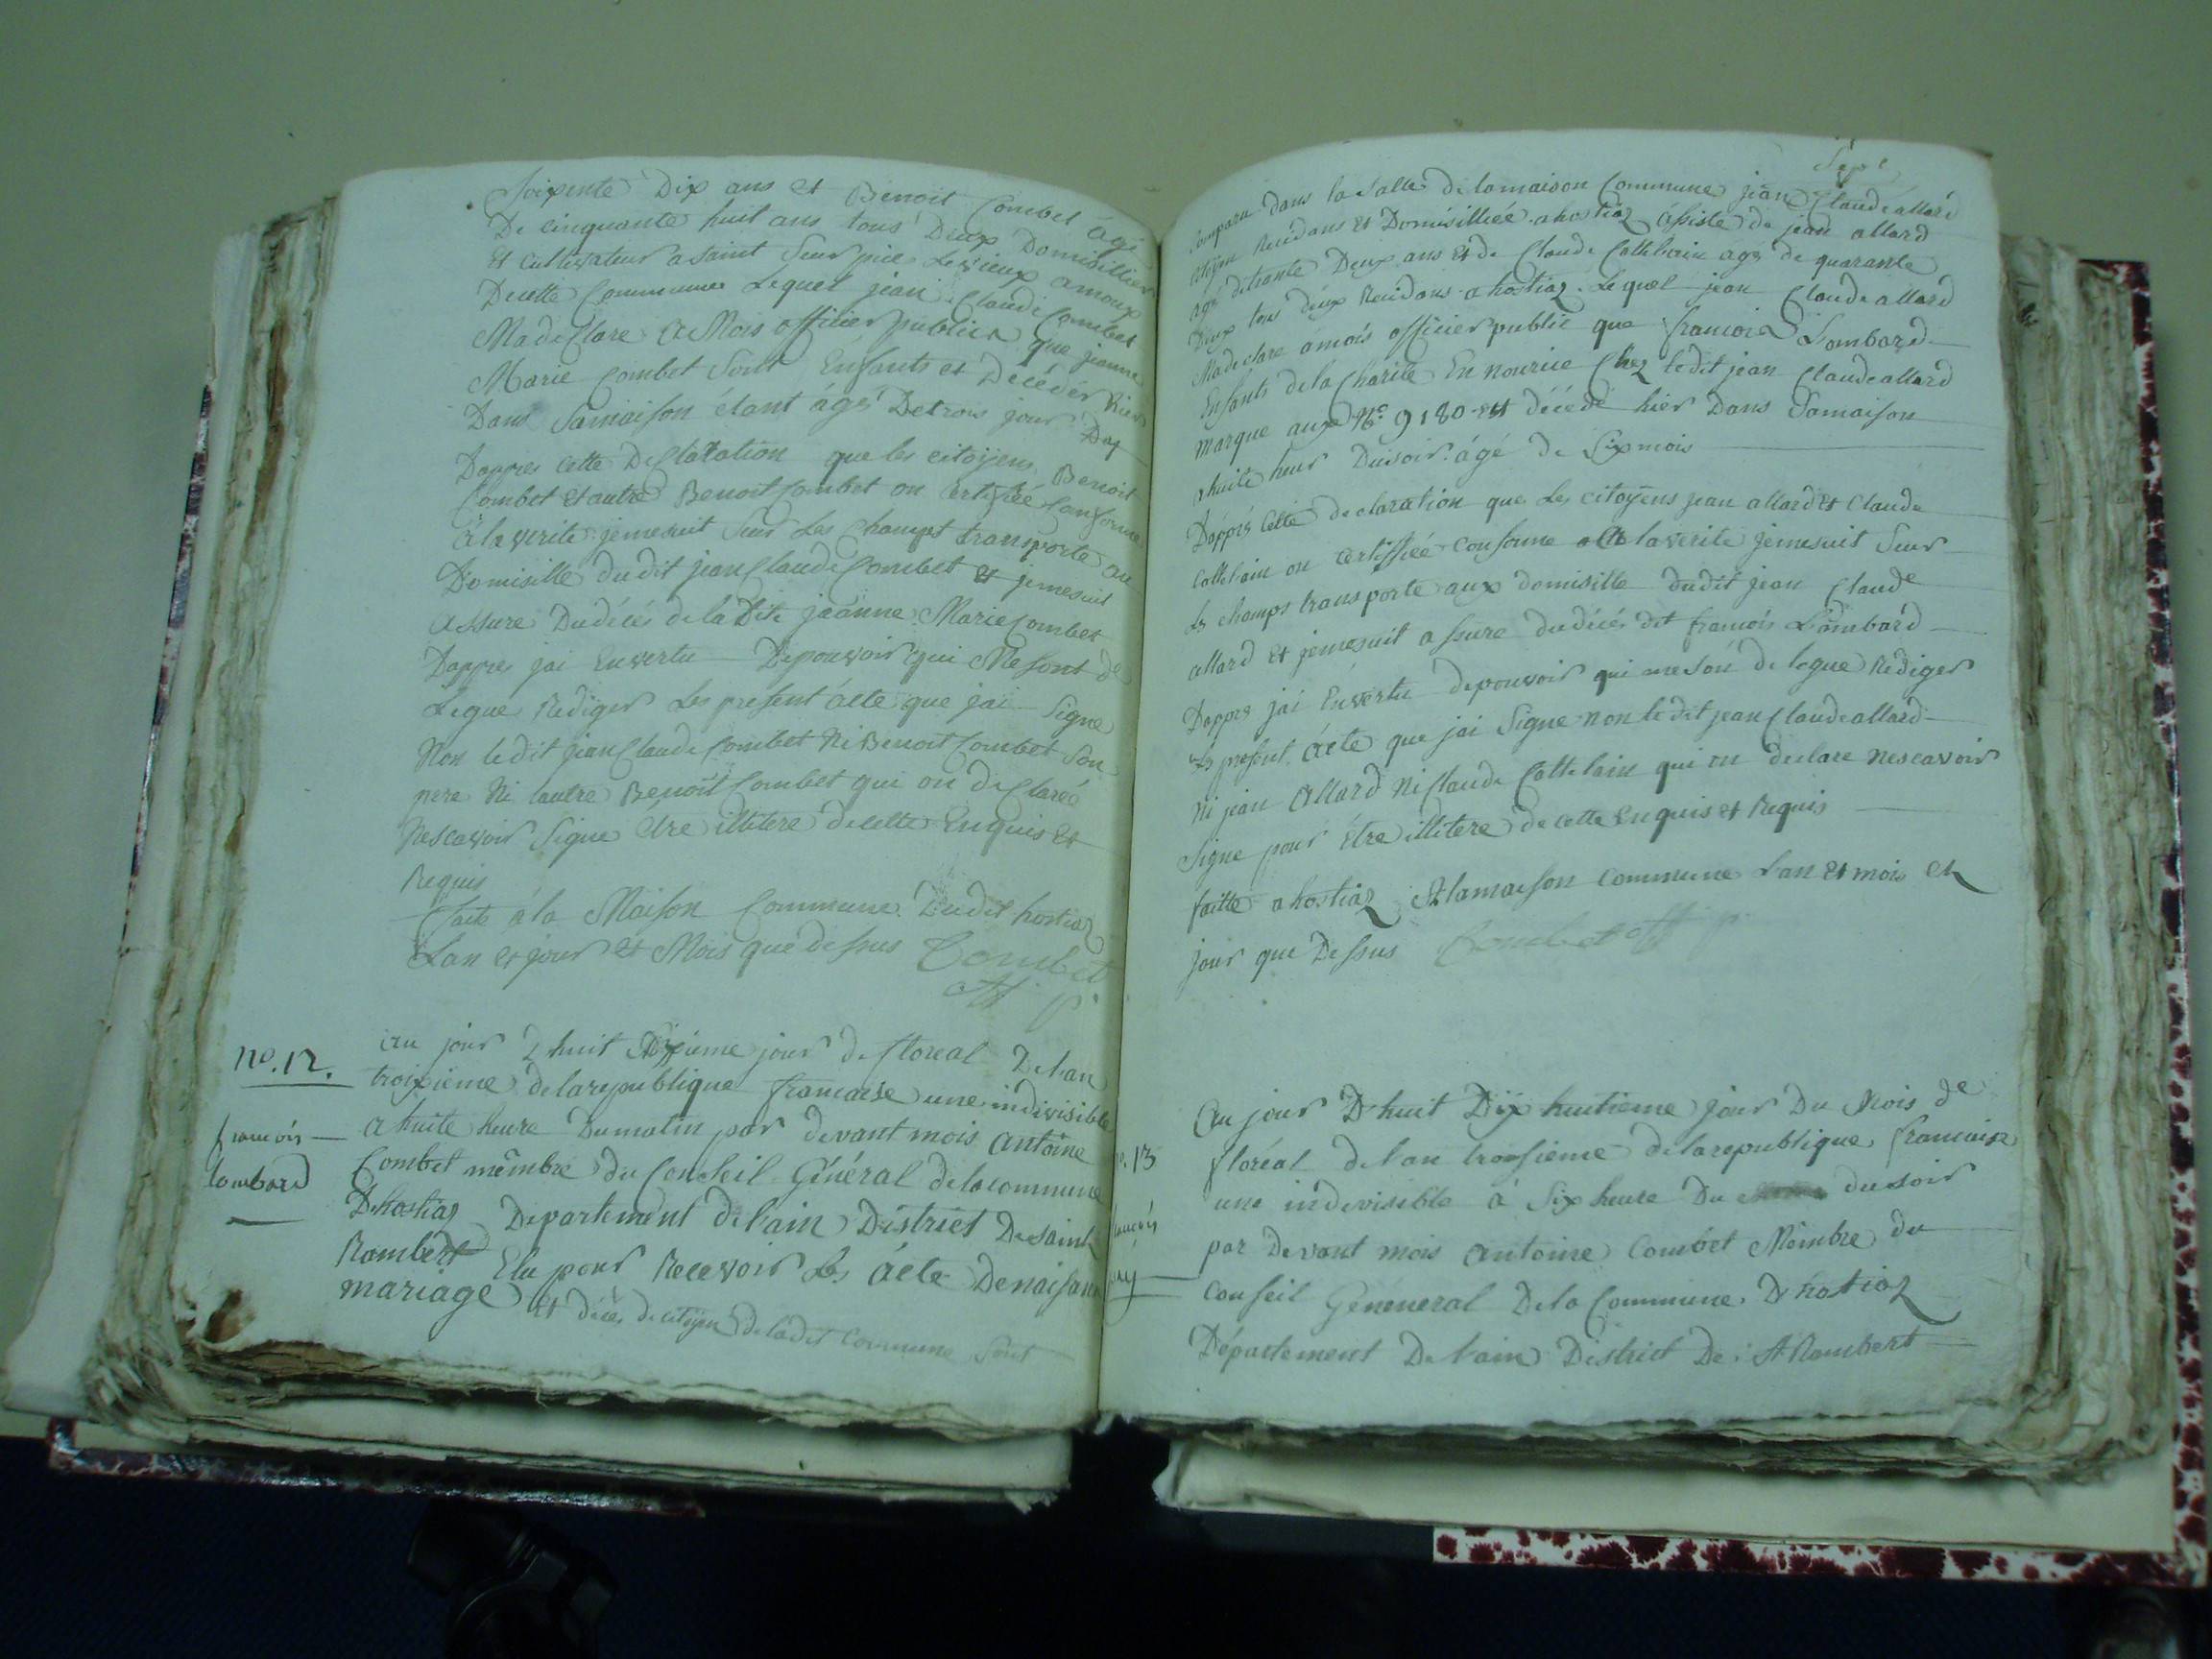 Soixente Dix ans et Benoit Combet ágé
De cinquante huit ans tous Deux Domisillier
Et cultivateur a saint Surpice Levieux amoux
Decette Commune Lequel jean Claude Combet
Madeclare a Mois officier publics que jeanne
Marie Combet Sont Enfants et Decédér hier
Dans Samaison étant ágé Detrois jour
Dappres cette Declaration que les citoyens Benoit
Combet et autre Benoit Combet on Certifiée Conforme
à la verite jemesuit Seur Les Champt transporte au
Domisille dudit jean Claude Combet et jemesuit
Assure Dudécés de la Dite jeanne Marie Combet
Dappres jai Envertu Depouvoir qui Mesont de
Legue Rediger Les present ácte que jai Signe
Non ledit jean Claude Combet Ni Benoit Combet Son
pere Ni lautre Benoit Combet qui on déclarée
Nescavoir Signe Etre illitere decette Enquis et
Requis
faite á la Maison Commune Dudit hostiaz
Lan et jour et Mois que dessus Combet
off p.
no. 12.
francois
lombard
au jour Dhuit jour de floreal Delan
troixieme delarepublique francaise une indivisible
a huite heure Dumatin par devant mois Antoine
Combet mêmbre du Conseil Général delacommune
Dhostiaz Departement delain District Desaint
Rambert Elu pour Recevoir Les ácte Denaisance
mariage et décés decitoyen deladit Commune Sont
Sept
Comparu dans la Salle de lamaison Commune jean Claude allard
citoyen Residans et Domisilliée a hostiaz assiste de jean allard
agé detrante Deux ans et de Claude Cattelain agé de quarante
Deux tous déux Residans a hostiaz Lequel jean Claude allard
Madeclare ámois officier public que francois Lombard
Enfants delaCharite En nourice Chez ledit jean Claude allard
marque aux No 9180 est décédé hier Dans Samaison
a huite heur Dusoir ágé de Six mois
Dappres Cette declaration que Les citoyens jean allard et Claude
Cattelain on certiffiée conforme a laverite jemesuit Seur
Les champs transporte aux domisille dudit jean Claude
allard et jemesuit assure dudécés dit francois Lombard
Dappres jai Envertu depouvoir qui meson delegue Rediger
Les present ácte que jai Signe non ledit jean Claude allard
Ni jean Allard Ni Claude Cattelain qui on declare nescavoir
Signe pour étre illitere decette Enquis et Requis
faitte a hostiaz A lamaison commune Lan et mois et
jour que Dessus Combet off p.
no. 13
francois
Au jour Dhuit Dix huitieme jour Du Mois de
floréal delan troisieme delarepublique francaise
une indevisible á Six heure Du dusoir
par Devant mois Antoine Combet Mémbre du
Conseil Géneneral Dela Commune Dhostiaz
Département Delain District De St Rambert